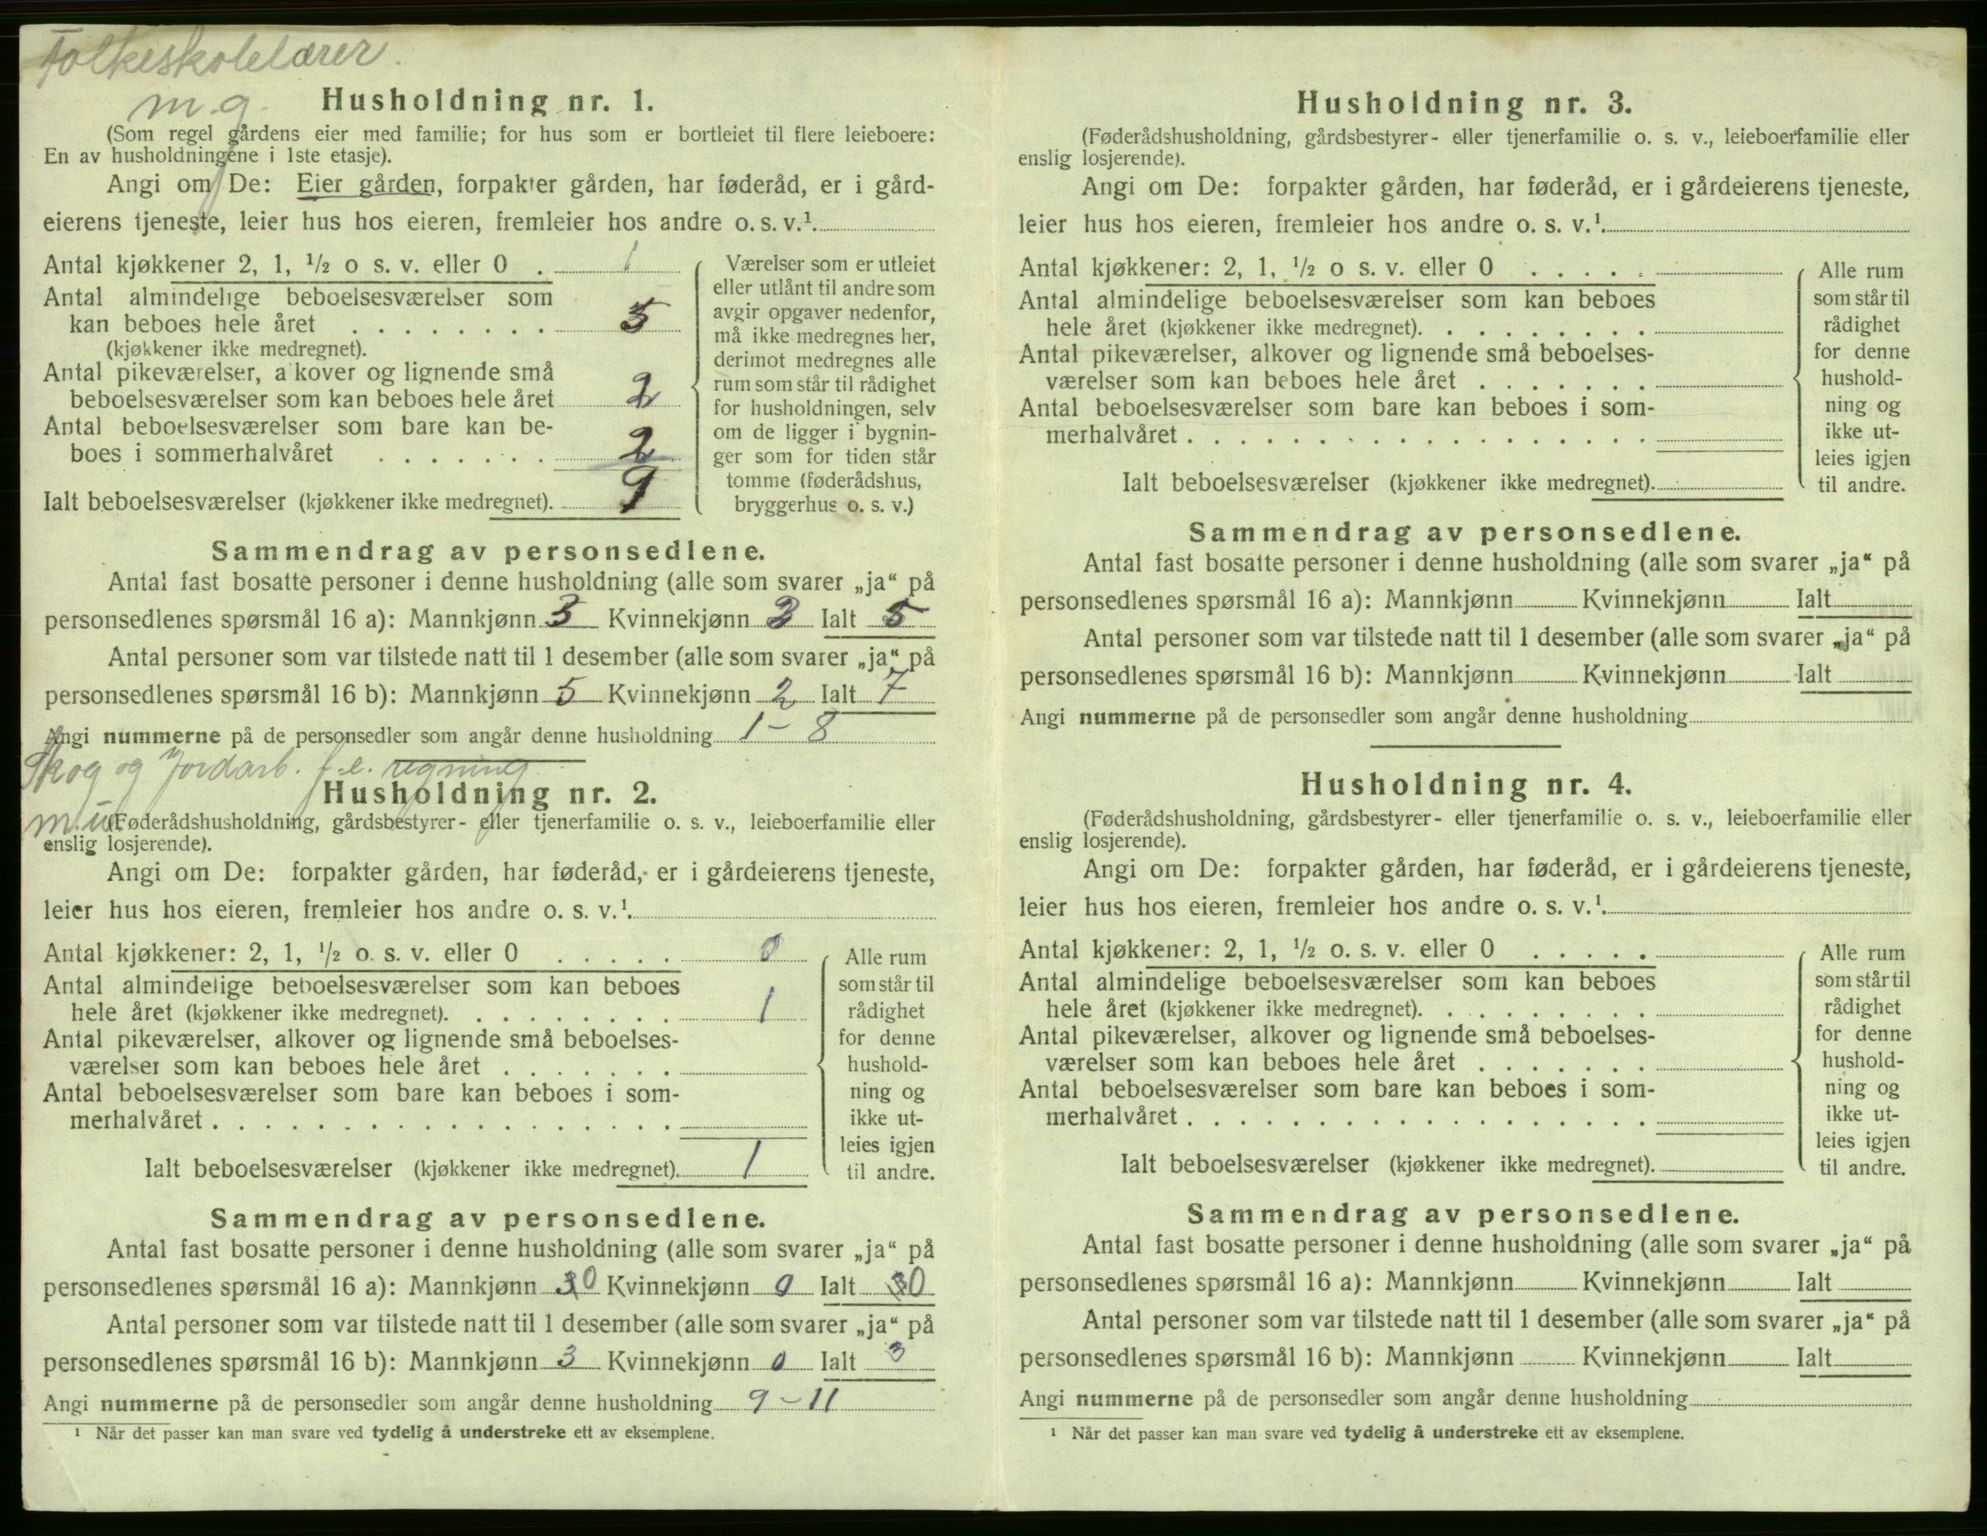 Folkeskolelærer.
m.g.
Husholdning nr. 1.
(Som regel gårdens eier med familie; for hus som er bortleiet til flere leieboere:
En av husholdningene i 1ste etasje).
Angi om De: Eier gården, forpakter gården, har føderåd, er i gård-
eierens tjeneste, leier hus hos eieren, fremleier hos andre o. s. v.¹.
Antal kjøkkener 2, 1, ½ o s. v. eller 0 . 1
Antal almindelige beboelsesværelser som
kan beboes hele året . . . . . . . . 5
(kjøkkener ikke medregnet).
Antal pikeværelser, a kover og lignende små
beboelsesværelser som kan beboes hele året 2
Antal beboelsesværelser som bare kan be-
boes i sommerhalvåret . . . . . . . 2
Ialt beboelsesværelser (kjøkkener ikke medregnet). 9
Værelser som er utleiet
eller utlånt til andre som
avgir opgaver nedenfor,
må ikke medregnes her,
derimot medregnes alle
rum som står til rådighet
for husholdningen, selv
om de ligger i bygnin-
ger som for tiden står
tomme (føderådshus,
bryggerhus o. s. v.)
Sammendrag av personsedlene.
Antal fast bosatte personer i denne husholdning (alle som svarer „ja“ på
personsedlenes spørsmål 16 a): Mannkjønn 3 Kvinnekjønn 2 Ialt 5
Antal personer som var tilstede natt til 1 desember (alle som svarer „ja“ på
personsedlenes spørsmål 16 b): Mannkjønn 5 Kvinnekjønn 2 Ialt 7
Angi nummerne på de personsedler som angår denne husholdning 1 - 8
Skog og Jordarb. f.e. regning
m.u.
Husholdning nr. 2.
(Føderådshusholdning, gårdsbestyrer- eller tjenerfamilie o. s. v., leieboerfamilie eller
enslig losjerende).
Angi om De: forpakter gården, har føderåd, er i gårdeierens tjeneste,
leier hus hos eieren, fremleier hos andre o. s. v.¹.
Antal kjøkkener: 2, 1, ½ o. s. v. eller 0 . . . . . 0
Antal almindelige beboelsesværelser som kan beboes
hele året (kjøkkener ikke medregnet). . . . . . . . . 1
Antal pikeværelser, alkover og lignende små beboelses-
værelser som kan beboes hele året . . . . . . .
Antal beboelsesværelser som bare kan beboes i som-
merhalvåret . . . . . . . . . . . . . . . . . .
Ialt beboelsesværelser (kjøkkener ikke medregnet). 1
Alle rum
som står til
rådighet
for denne
hushold-
ning og
ikke ut-
leies igjen
til andre.
Sammendrag av personsedlene.
Antal fast bosatte personer i denne husholdning (alle som svarer „ja“ på
personsedlenes spørsmål 16 a): Mannkjønn 3 0 Kvinnekjønn 0 Ialt 3 0
Antal personer som var tilstede natt til 1 desember (alle som svarer „ja“ på
personsedlenes spørsmål 16 b): Mannkjønn 3 Kvinnekjønn 0 Ialt 3
Angi nummerne på de personsedler som angår denne husholdning 9 - 11
¹ Når det passer kan man svare ved tydelig å understreke ett av eksemplene.
Husholdning nr. 3.
(Føderådshusholdning, gårdsbestyrer- eller tjenerfamilie o. s. v., leieboerfamilie eller
enslig losjerende).
Angi om De: forpakter gården, har føderåd, er i gårdeierens tjeneste,
leier hus hos eieren, fremleier hos andre o. s. v.¹.
Antal kjøkkener: 2, 1, ½ o s. v. eller 0 . . . . .
Antal almindelige beboelsesværelser som kan beboes
hele året (kjøkkener ikke medregnet). . . . . . . . .
Antal pikeværelser, alkover og lignende små beboelses-
værelser som kan beboes hele året . . . . . . .
Antal beboelsesværelser som bare kan beboes i som-
merhalvåret . . . . . . . . . . . . . . . . . .
Ialt beboelsesværelser (kjøkkener ikke medregnet).
Alle rum
som står til
rådighet
for denne
hushold-
ning og
ikke ut-
leies igjen
til andre.
Sammendrag av personsedlene.
Antal fast bosatte personer i denne husholdning (alle som svarer „ja“ på
personsedlenes spørsmål 16 a): Mannkjønn Kvinnekjønn Ialt
Antal personer som var tilstede natt til 1 desember (alle som svarer „ja“ på
personsedlenes spørsmål 16 b): Mannkjønn Kvinnekjønn Ialt
Angi nummerne på de personsedler som angår denne husholdning
Husholdning nr. 4.
(Føderådshusholdning, gårdsbestyrer- eller tjenerfamilie o. s. v., leieboerfamilie eller
enslig losjerende).
Angi om De: forpakter gården, har føderåd, er i gårdeierens tjeneste,
leier hus hos eieren, fremleier hos andre o. s. v.¹.
Antal kjøkkener: 2, 1, ½ o. s. v. eller 0 . . . . .
Antal almindelige beboelsesværelser som kan beboes
hele året (kjøkkener ikke medregnet). . . . . . . . .
Antal pikeværelser, alkover og lignende små beboelses-
værelser som kan beboes hele året . . . . . . .
Antal beboelsesværelser som bare kan beboes i som-
merhalvåret . . . . . . . . . . . . . . . . . .
Ialt beboelsesværelser (kjøkkener ikke medregnet).
Alle rum
som står til
rådighet
for denne
hushold-
ning og
ikke ut-
leies igjen
til andre.
Sammendrag av personsedlene.
Antal fast bosatte personer i denne husholdning (alle som svarer „ja“ på
personsedlenes spørsmål 16 a): Mannkjønn Kvinnekjønn Ialt
Antal personer som var tilstede natt til 1 desember (alle som svarer „ja“ på
personsedlenes spørsmål 16 b): Mannkjønn Kvinnekjønn Ialt
Angi nummerne på de personsedler som angår denne husholdning
¹ Når det passer kan man svare ved tydelig å understreke ett av eksemplene.